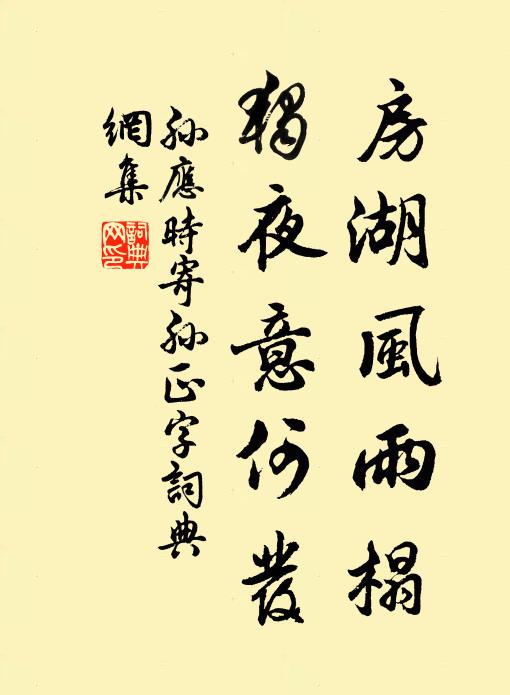 房湖風雨榻
獨夜意何發
孫應時寄孫正字詞典
網集
詞典網印